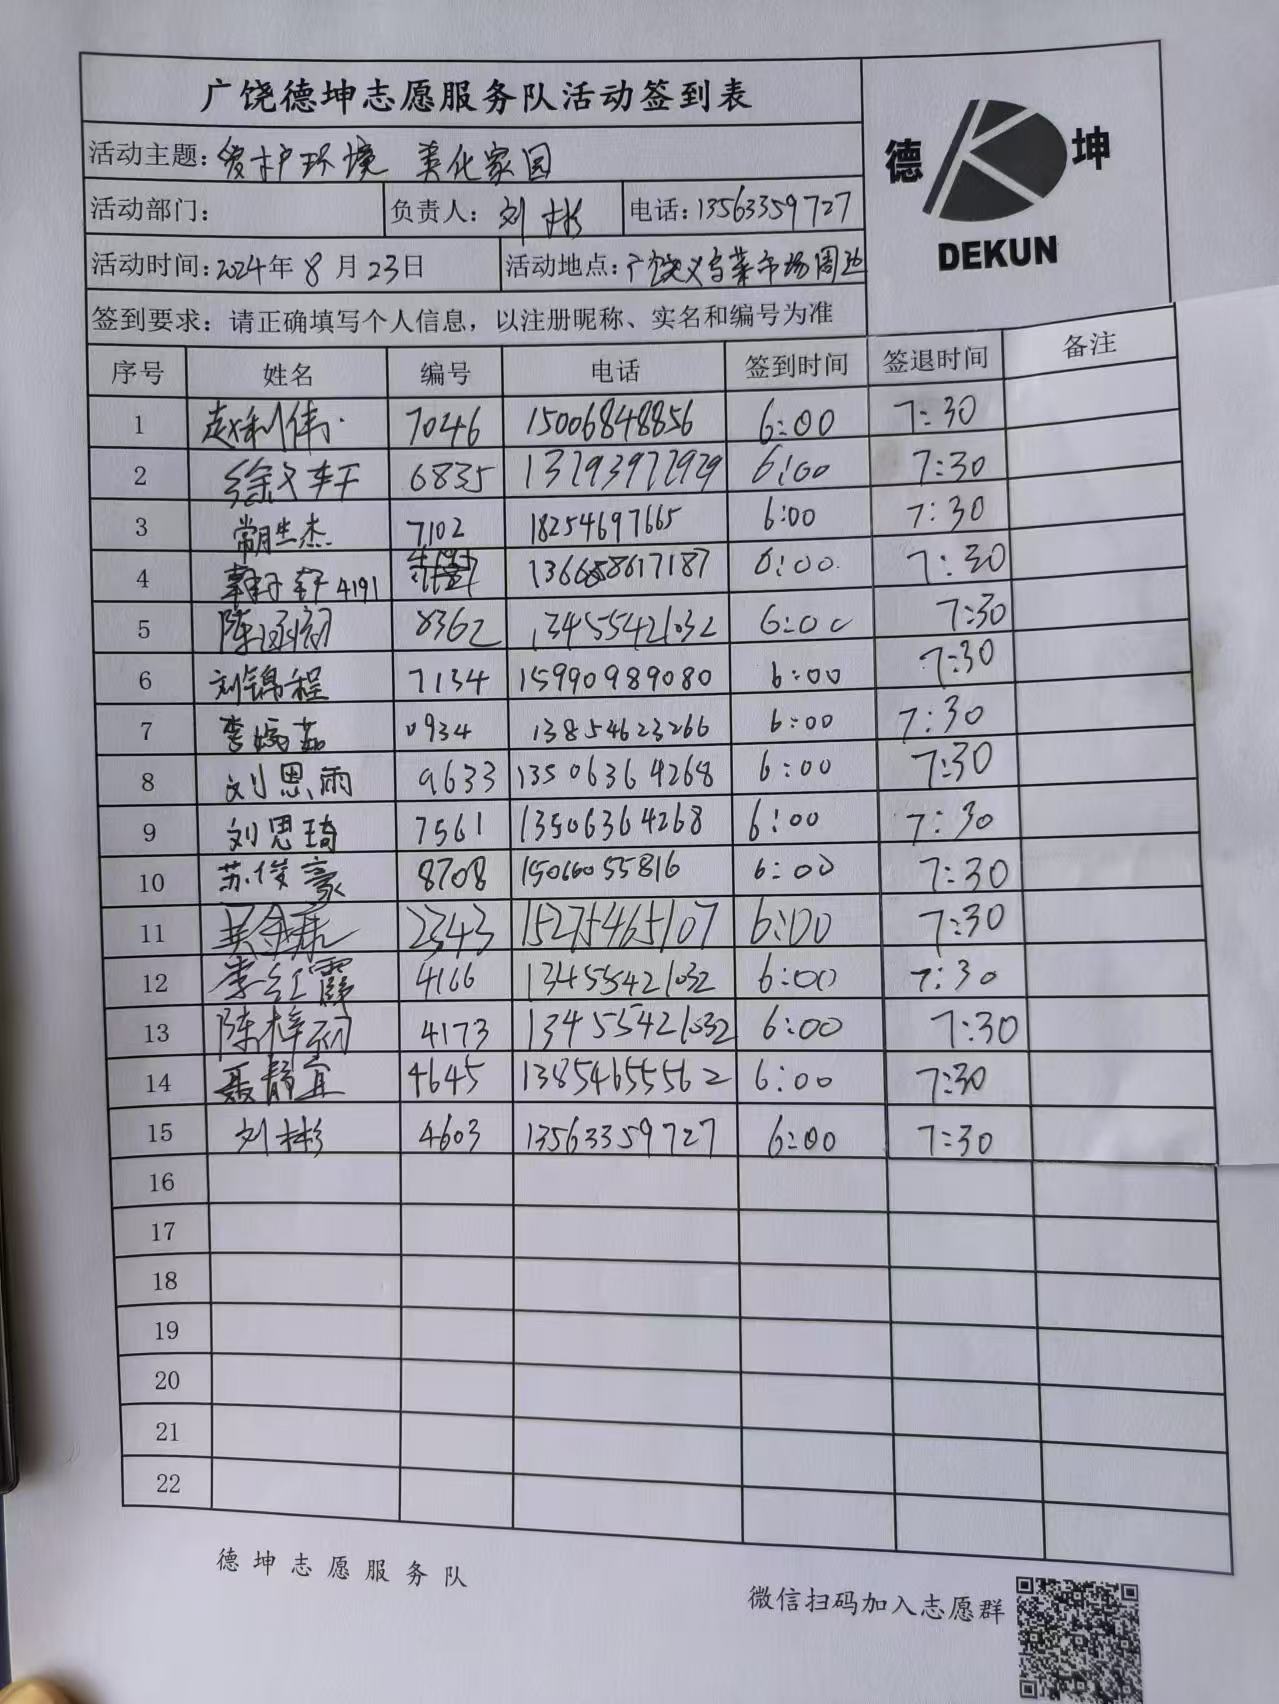 广饶德坤志愿服务队活动签到表
德 坤
DEKUN
活动主题：爱护环境 美化家园
活动部门： 负责人：刘彬 电话：13563359727
活动时间：2024年8月23日 活动地点：广饶义乌菜市场周边
签到要求：请正确填写个人信息，以注册昵称、实名和编号为准
序号 姓名 编号 电话 签到时间 签退时间 备注
1 赵利伟 7046 15006848856 6:00 7:30
2 徐义轩 6835 13793972929 6:00 7:30
3 常胜杰 7102 18254697665 6:00 7:30
4 4191 6:00 7:30
5 8362 13455421032 6:00 7:30
6 刘锦程 7134 15990989080 6:00 7:30
7 0934 13854623266 6:00 7:30
8 刘恩雨 9633 13506364268 6:00 7:30
9 刘思琦 7561 13506364268 6:00 7:30
10 苏俊豪 8708 15066055816 6:00 7:30
11 2343 15275465107 6:00 7:30
12 李红霞 4166 13455421032 6:00 7:30
13 4173 13455421032 6:00 7:30
14 聂静宜 4645 13854655562 6:00 7:30
15 刘彬 4603 13563359727 6:00 7:30
16
17
18
19
20
21
22
德坤志愿服务队
微信扫码加入志愿群